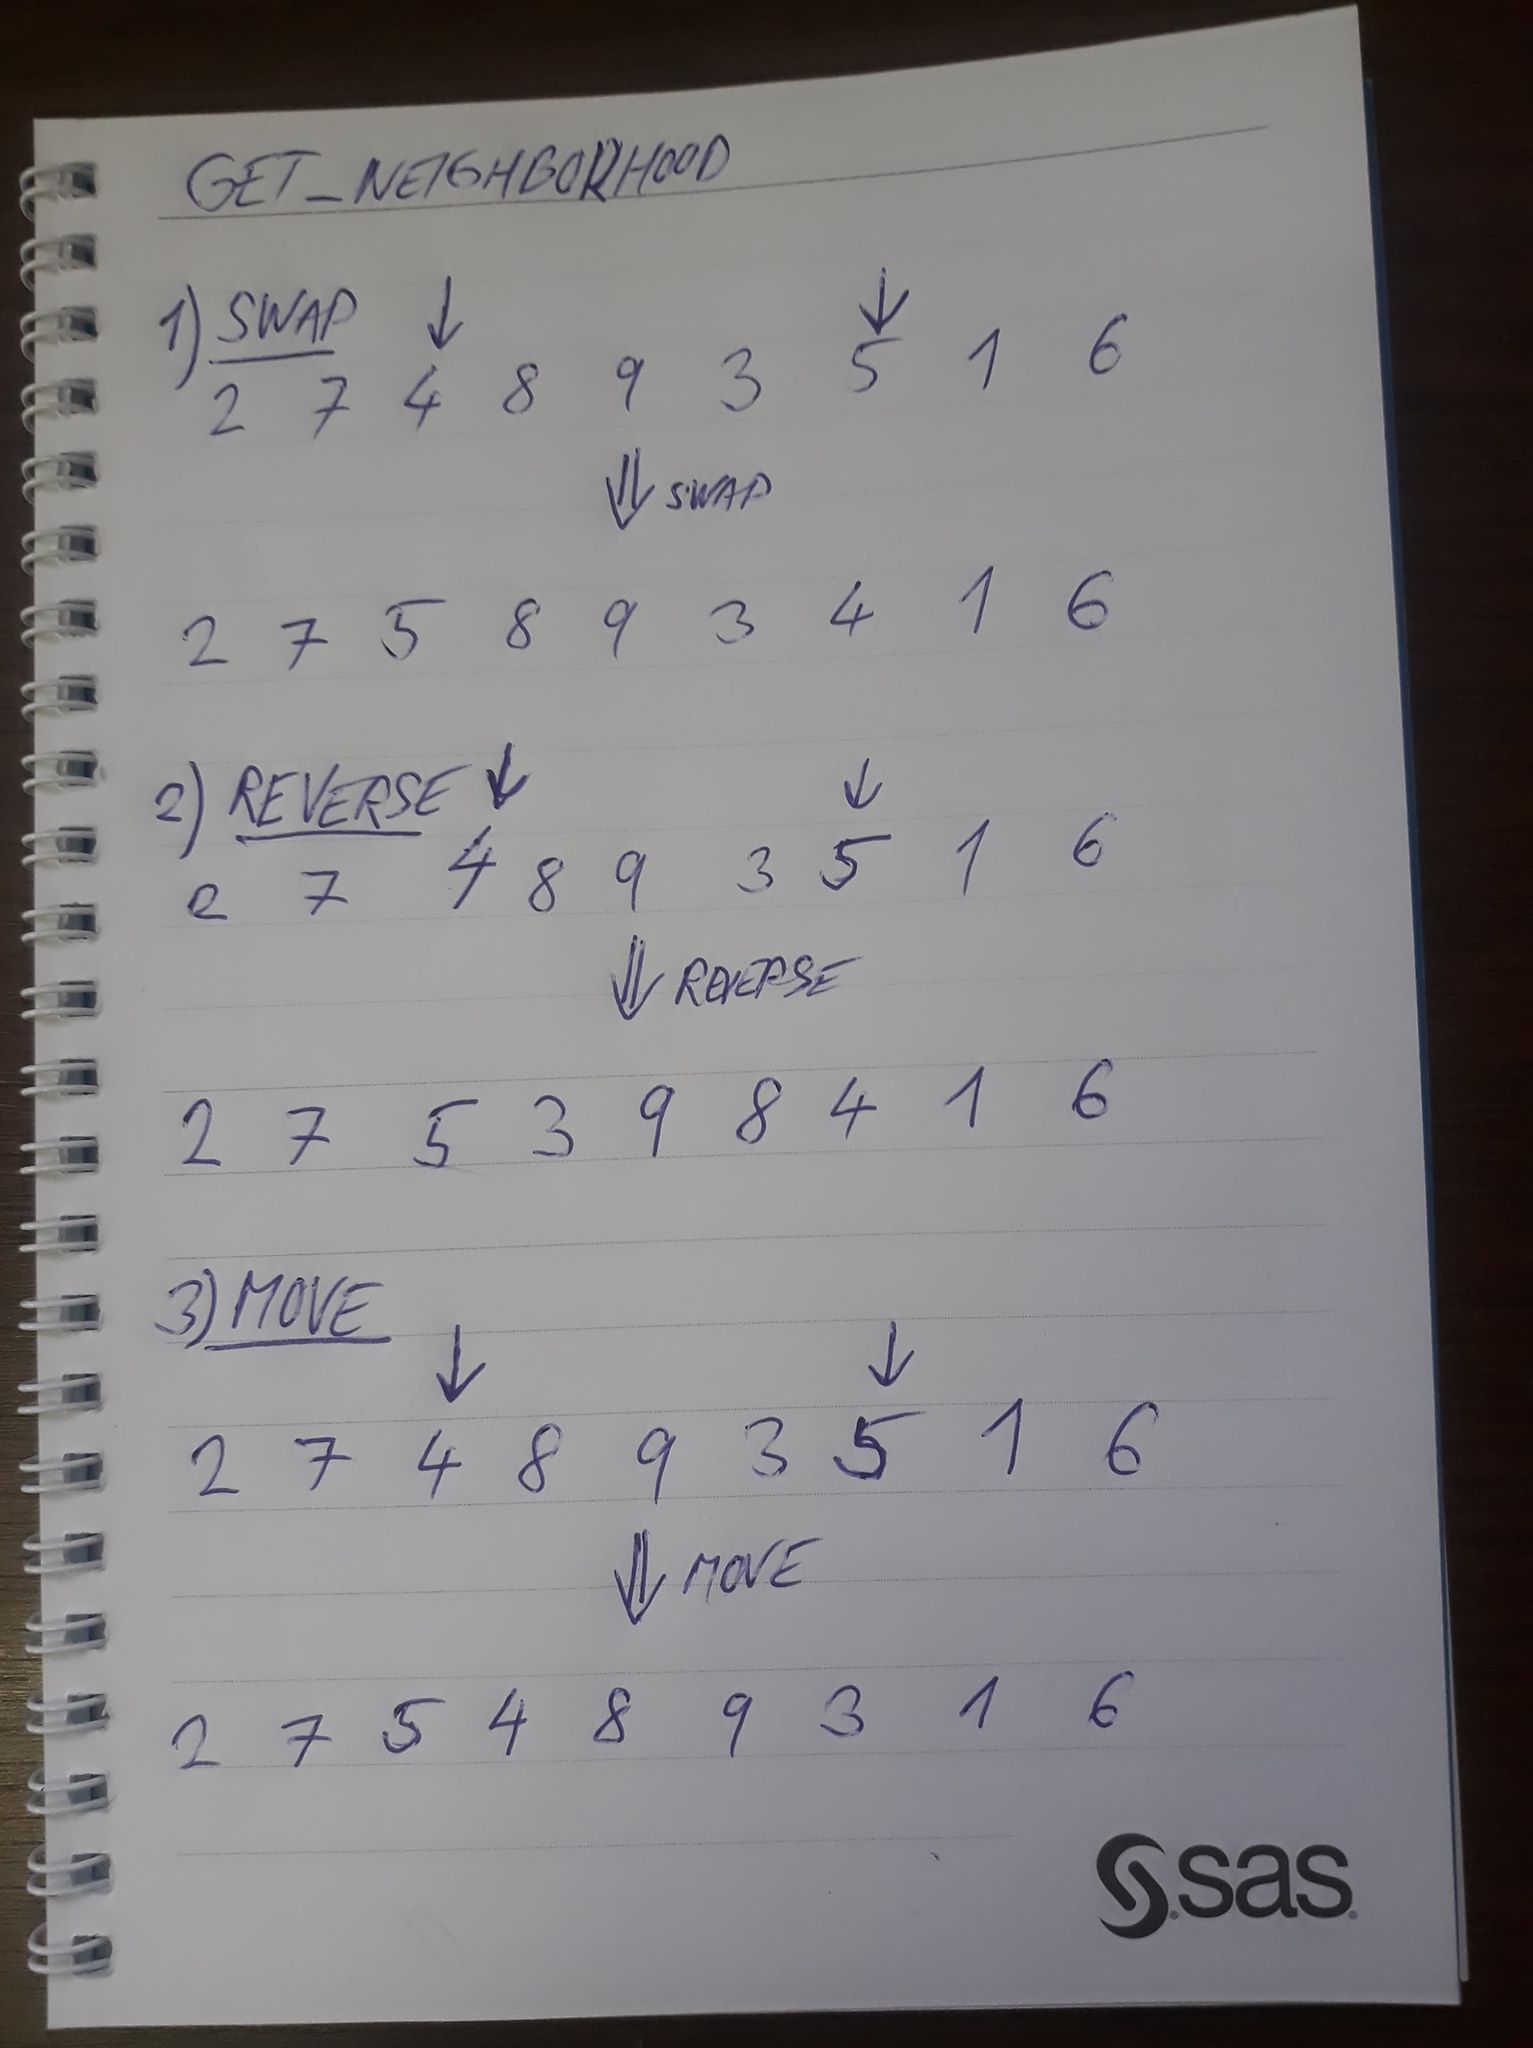 GET_NEIGHBORHOOD
1) SWAP ↓ ↓
2 7 4 8 9 3 5 1 6
⇓ SWAP
2 7 5 8 9 3 4 1 6
2) REVERSE ↓ ↓
2 7 4 8 9 3 5 1 6
⇓ REVERSE
2 7 5 3 9 8 4 1 6
3) MOVE
↓ ↓
2 7 4 8 9 3 5 1 6
⇓ MOVE
2 7 5 4 8 9 3 1 6
sas